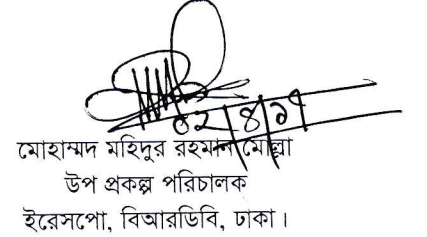 ০২/৪/২৭
মোহাম্মদ মহিদুর রহমান মোল্লা
উপ প্রকল্প পরিচালক
ইরেসপো, বিআরডিবি, ঢাকা।